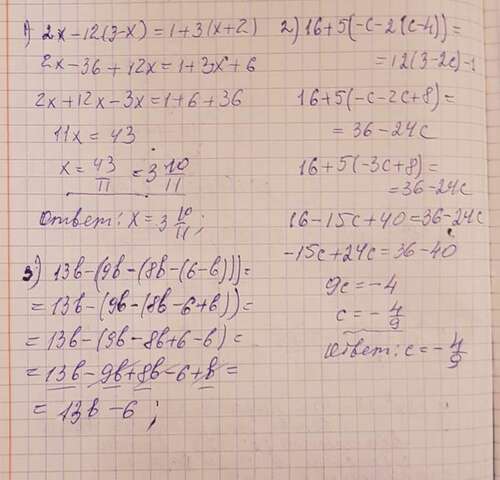 1) 2x-12(3-x)=1+3(x+2)
2x-36+12x=1+3x+6
2x+12x-3x=1+6+36
11x=43
x=43/11=3 10/11
Ответ: x=3 10/11;
2) 16+5(-c-2(c-4))=
=12(3-2c)-1
16+5(-c-2c+8)=
=36-24c
16+5(-3c+8)=
=36-24c
16-15c+40=36-24c
-15c+24c=36-40
9c=-4
c=-4/9
Ответ: c=-4/9
3) 13b-(9b-(8b-(6-b)))=
=13b-(9b-(8b-6+b))=
=13b-(9b-8b+6-b)=
=13b-9b+8b-6+b=
=13b-6;